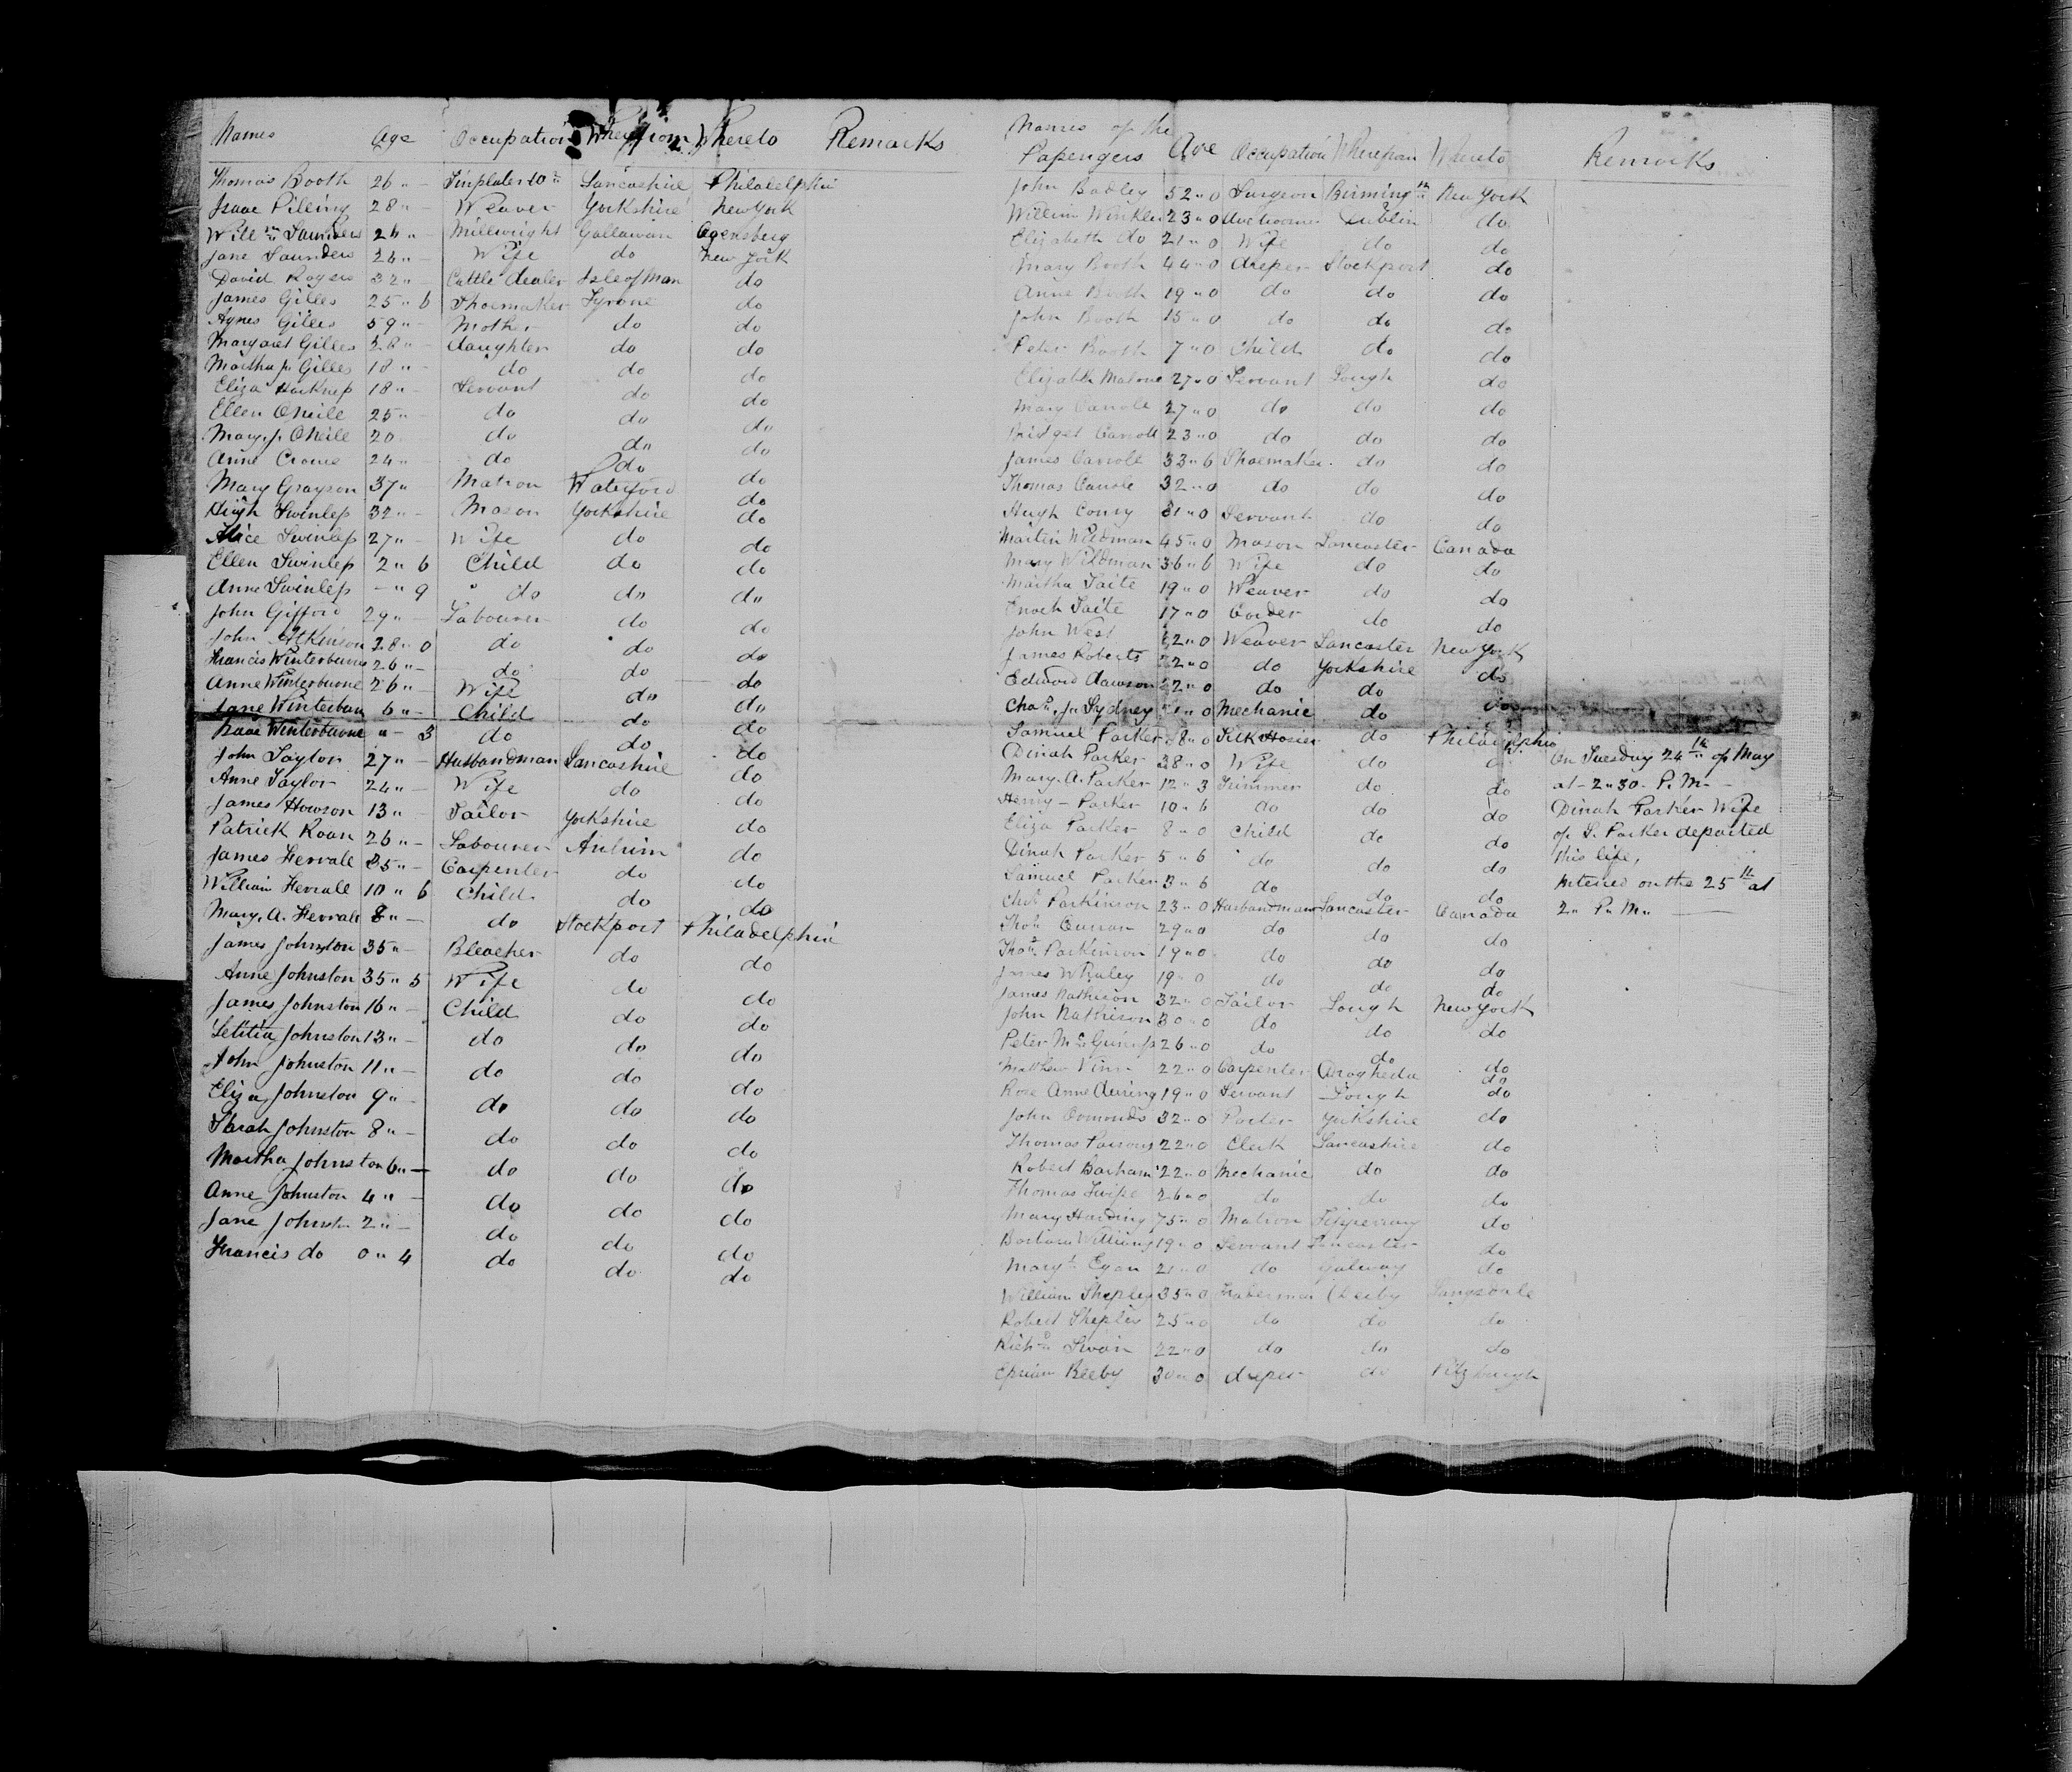 Names Age Occupation Wherefrom Whereto Remarks
Thomas Booth 26 " - Lancashire Philadelphia
Isaac Pilling 28 " - Weaver Yorkshire New York
Will m Saunders 26 " - Millwright Gallawan Ogensberg
Jane Saunders 26 " - Wife do New York
David Rogers 32 " - Cattle dealer Isle of Man do
James Gilles 25 " 6 Shoemaker Tyrone do
Agnes Gilles 59 " - Mother do do
Margaret Gilles 28 " - daughter do do
Martha Jn Gilles 18 " - do do do
Eliza Harknefs 18 " - Servant do do
Ellen ONeile 25 " - do do do
Mary J. ONeile 20 do do do
Anne Crowe 24 " do do do
Mary Grayson 37 " Matron Waterford do
Hugh Swinlefs 32 " - Mason Yorkshire do
Alice Swinlefs 27 " - Wife do do
Ellen Swinlefs 2 " 6 Child do do
Anne Swinlefs - " 9 do do do
John Gifford 29 " - Labourer do do
John Atkinson 28 " 0 do do do
Francis Winterburne 26 " - do do do
Anne Winterburne 26 " - Wife do do
Jane Winterburn 6 " - Child do do
Isaac Winterburne " - 3 do do do
John Taylor 27 " - Husbandman Lancashire do
Anne Taylor 24 " - Wife do do
James Howson 13 " - Tailor Yorkshire do
Patrick Roan 26 " - Labourer Antrim do
James Hervale 35 " - Carpenter do do
William Hervale 10 " 6 Child do do
Mary. A. Hervale 8 " - do Stockport Philadelphia
James Johnston 35 " - Bleacher do do
Anne Johnston 35 " 5 Wife do do
James Johnston 16 " - Child do do
Letitia Johnston 13 " - do do do
John Johnston 11 " - do do do
Eliza Johnston 9 " - do do do
Sarah Johnston 8 " - do do do
Martha Johnston 6 " - do do do
Anne Johnston 4 " - do do do
Jane Johnston 2 " - do do do
Francis do 0 " 4 do do do
Names of the
Pafsengers Age Occupation Wherefrom Whereto Remarks
John Badley 52 " 0 Surgeon Birming m New York
William 23 " 0 Dublin do
Elizabeth do 21 " 0 Wife do do
Mary Booth 44 " 0 draper Stockport do
Anne Booth 19 " 0 do do do
John Booth 15 " 0 do do do
Peter Booth 7 " 0 Child do do
Elizabth Malone 27 " 0 Servant Lough do
Mary Carrole 27 " 0 do do do
Bridget Carroll 23 " 0 do do do
James Carrole 33 " 6 Shoemaker do do
Thomas Carrole 32 " 0 do do do
Hugh Conry 31 " 0 Servant do do
Martin Wildman 45 " 0 Mason Lancaster Canada
Mary Wildman 36 " 6 Wife do do
Martha Taite 19 " 0 Weaver do do
Enoch Taite 17 " 0 do do
John West 22 " 0 Weaver Lancaster New York
James Roberts 22 " 0 do Yorkshire do
Edward dawson 22 " 0 do do
Cha s. Jn Sydney Mechanic do do
Samuel Parker 38 " 0 Silk Hosier do Philadelphia
Dinah Parker 38 " 0 Wife do On Tuesday 24 th of May
Mary. A. Parker 12 " 3 Trimmer do do at - 2 " 30. P. M -
Henry - Parker 10 " 6 do do do Dinah Parker Wife
Eliza Parker 8 " 0 Child do do of S. Parker departed
Dinah Parker 5 " 6 do do do this life,
Samuel Parker 3 " 6 do do do Intered on the 25 th at
Parkinson 23 " 0 Husbandman Lancaster Canada 2 " P. M "
Tho s Curran 29 " 0 do do do
Tho s Parkinson 19 " 0 do do do
James Whaley 19 " 0 do do do
James Nathison 32 " 0 Tailor Lough New York
John Nathison 30 " 0 do do do
Peter Mc 26 " 0 do do do
Matthew 22 " 0 Carpenter Drogheda do
Rose Anne 19 " 0 Servant Lough do
John Osmonds 32 " 0 Porter Yorkshire do
Thomas Parsons 22 " 0 Clerk Lancashire do
Robert Barham 22 " 0 Mechanic do do
Thomas 26 " 0 do do do
Mary Harding 75 " 0 Matron Tipperary do
Barbara Williams 19 " 0 Servant Lancaster do
Mary Egan 21 " 0 do Galway do
William Shepley 35 " 0 Derby
Robert Shepley 25 " 0 do do do
Rich d Swan 22 " 0 do do do
Beeby 30 " 0 draper do Pitzburgh